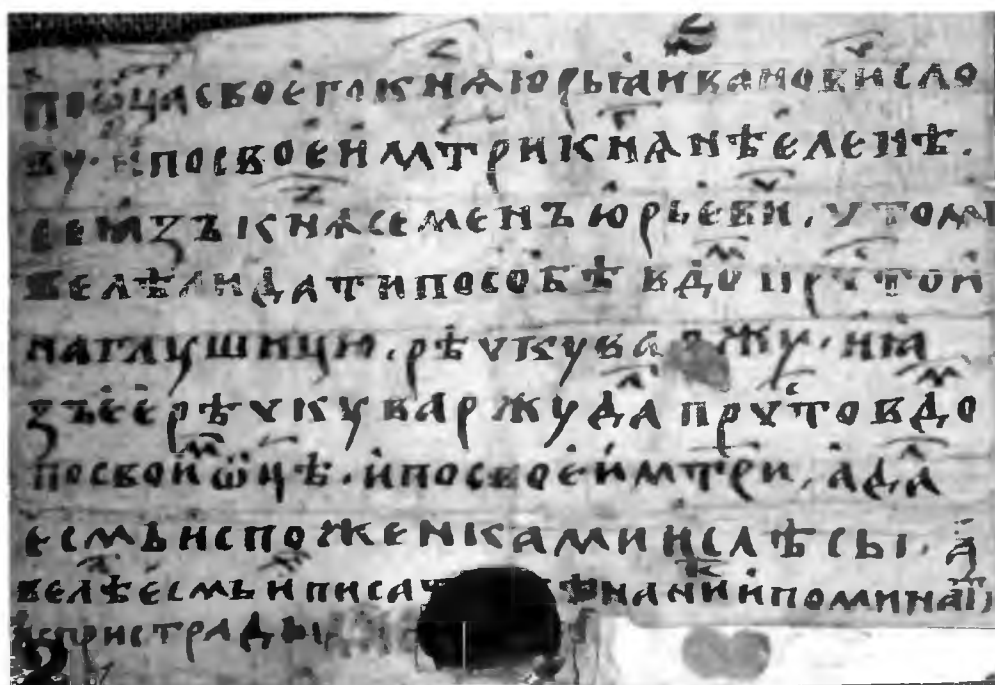 по ѿца своего кнѧ юрьꙗ ивановисло
ву. и по своеи мтри кнѧнѣ еленѣ.
се ꙗзъ кнѧ семенъ юрьеви, у том
велѣли дати по собѣ вдо пруто и
на глушицю. рѣчку варжу. и ꙗ
зъ ее рѣчку варжу да пручтов до
по свои ѿцѣ. и по своеи мтри. а да
есмь и с поженками и с лѣсы. а
велѣ есмь и писа нании и поминаті
и при страды